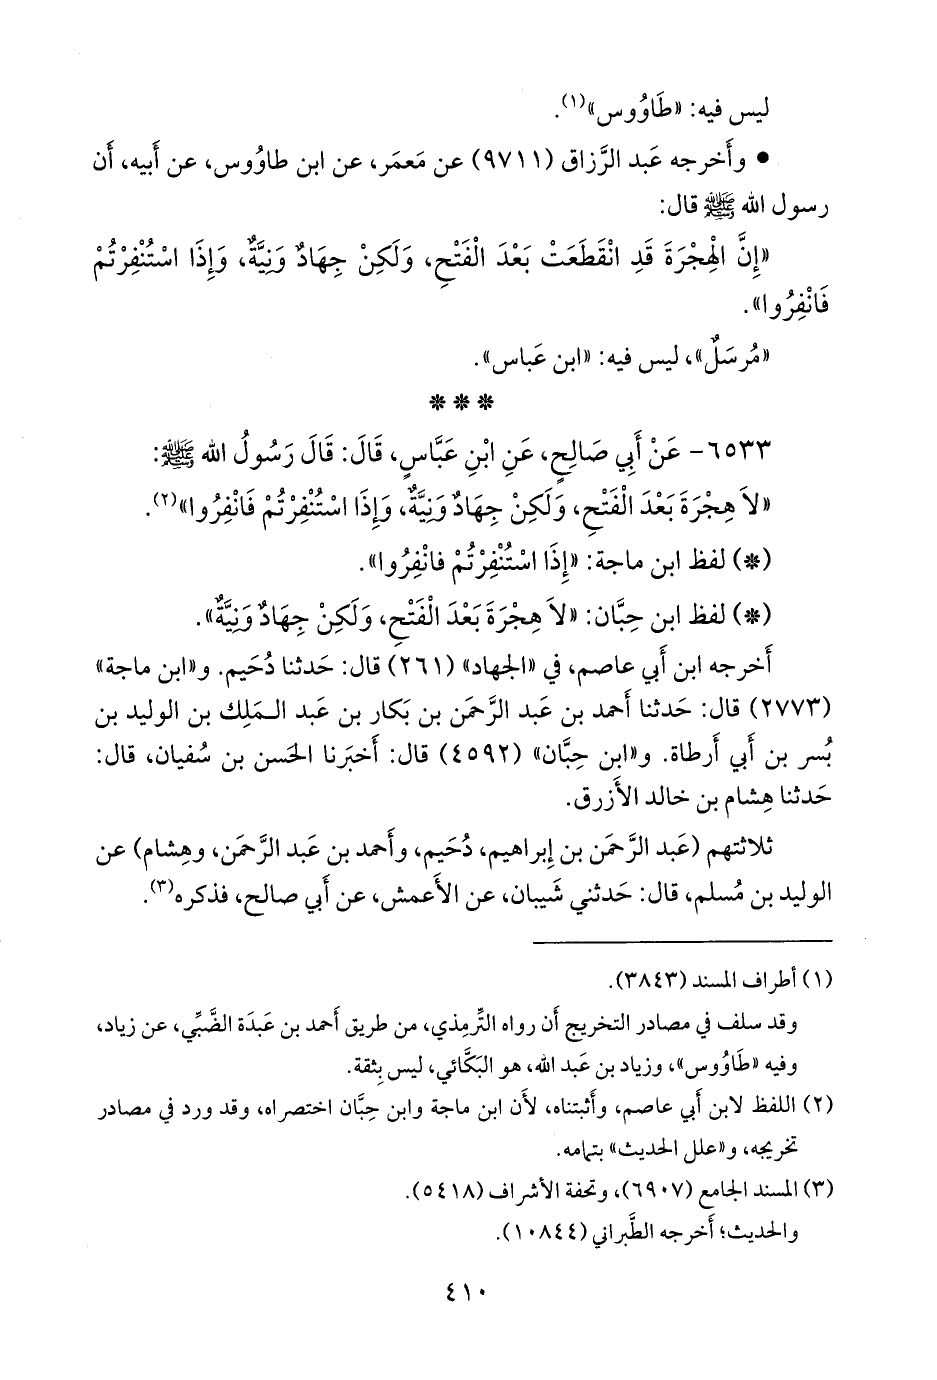 ليس فيه: «طَاوُوس»(١).
• وأَخرجه عَبد الرَّزاق (٩٧١١) عن مَعمَر، عن ابن طاوُوس، عن أَبيه، أَن
رسول الله ﷺ قال:
«إِنَّ الْهِجْرَةَ قَدِ انْقَطَعَتْ بَعْدَ الْفَتْحِ، وَلَكِنْ جِهَادٌ وَنِيَّةٌ، وَإِذَا اسْتُنْفِرْتُمْ
فَانْفِرُوا».
«مُرسَلٌ»، ليس فيه: «ابن عَباس».
* * *
٦٥٣٣- عَنْ أَبِي صَالِحٍ، عَنِ ابْنِ عَبَّاسٍ، قَالَ: قَالَ رَسُولُ الله ﷺ:
«لاَ هِجْرَةَ بَعْدَ الْفَتْحِ، وَلَكِنْ جِهَادٌ وَنِيَّةٌ، وَإِذَا اسْتُنْفِرْتُمْ فَانْفِرُوا»(٢).
(*) لفظ ابن ماجة: «إِذَا اسْتُنْفِرْتُمْ فانْفِرُوا».
(*) لفظ ابن حِبَّان: «لاَ هِجْرَةَ بَعْدَ الْفَتْحِ، وَلَكِنْ جِهَادٌ وَنِيَّةٌ».
أَخرجه ابن أَبي عاصم، في «الجهاد» (٢٦١) قال: حَدثنا دُحَيم. و«ابن ماجة»
(٢٧٧٣) قال: حَدثنا أَحمد بن عَبد الرَّحمَن بن بَكار بن عَبد الـمَلِك بن الوليد بن
بُسر بن أَبي أَرطاة. و«ابن حِبَّان» (٤٥٩٢) قال: أَخبَرنا الحَسن بن سُفيان، قال:
حَدثنا هِشام بن خالد الأَزرق.
ثلاثتهم (عَبد الرَّحمَن بن إِبراهيم، دُحَيم، وأَحمد بن عَبد الرَّحمَن، وهِشام) عن
الوليد بن مُسلم، قال: حَدثني شَيبان، عن الأَعمش، عن أَبي صالح، فذكره(٣).
(١) أطراف المسند (٣٨٤٣).
وقد سلف في مصادر التخريج أَن رواه التِّرمِذي، من طريق أَحمد بن عَبدَة الضَّبِّي، عن زياد،
وفيه «طَاوُوس»، وزياد بن عَبد الله، هو البَكَّائي، ليس بِثقة.
(٢) اللفظ لابن أَبي عاصم، وأَثبتناه، لأَن ابن ماجة وابن حِبَّان اختصراه، وقد ورد في مصادر
تخريجه، و«علل الحديث» بتمامه.
(٣) المسند الجامع (٦٩٠٧)، وتحفة الأشراف (٥٤١٨).
والحديث؛ أَخرجه الطَّبراني (١٠٨٤٤).
٤١٠